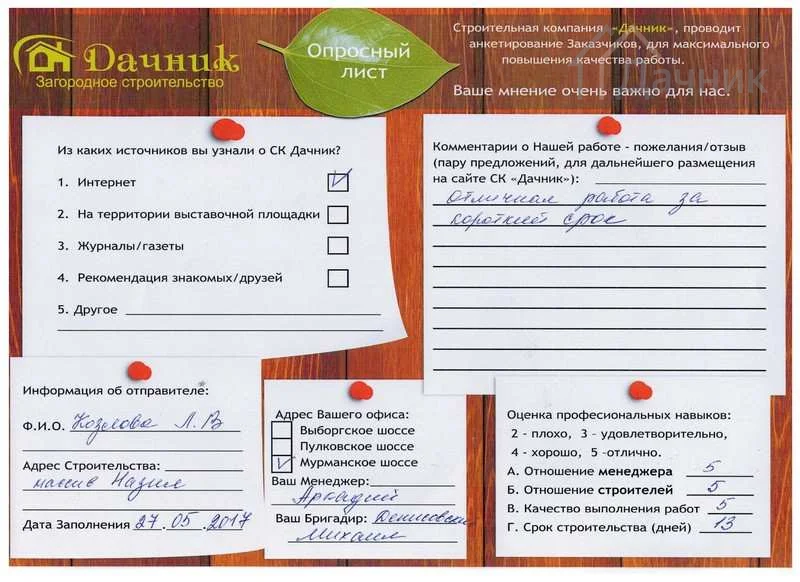 Дачник
Загородное строительство
Опросный
лист
Строительная компания «Дачник», проводит
анкетирование Заказчиков, для максимального
повышения качества работы.
Дачник
Ваше мнение очень важно для нас.
Из каких источников вы узнали о СК Дачник?
1. Интернет
2. На территории выставочной площадки
3. Журналы/газеты
4. Рекомендация знакомых/друзей
5. Другое
Комментарии о Нашей работе - пожелания/отзыв
(пару предложений, для дальнейшего размещения
на сайте СК «Дачник»):
Отличная работа за
короткий срок
Информация об отправителе:
Ф.И.О. Козлова Л.В
Адрес Строительства:
массив Назия
Дата Заполнения 27.05.2017
Адрес Вашего офиса:
Выборгское шоссе
Пулковское шоссе
Мурманское шоссе
Ваш Менеджер:
Аркадий
Ваш Бригадир: Денисовский
Михаил
Оценка профессиональных навыков:
2 - плохо, 3 - удовлетворительно,
4 - хорошо, 5 -отлично.
А. Отношение менеджера 5
Б. Отношение строителей 5
В. Качество выполнения работ 5
Г. Срок строительства (дней) 13